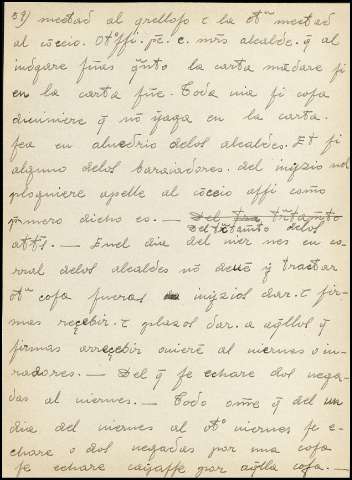 59) meetad al grellofo τ la otª meetad
al cōceio. Otºffi. p̄c. c. mr̄s alcalde. q̄ al
iudgare fūas q̄nto la carta mādare fi
en la carta fūe. Toda via fi cofa
auiniere q̄ nō yaga en la carta.
fea en aluedrio delos alcaldes. Et fi
alguno delos baraiadores. del iuyzio nol
ploguiere apelle al cōceio affi como
p̄mero dicho es. — Del tra tr̄tam̄to
Del tr̄tam̄to delos
att̄s. — Enel dia del vier nes en co-
rral delos alcaldes nō deuē y tractar
otª cofa fueras iuyzios dar. τ fir-
mas reçebir. τ plazos dar. a aq̄llos q̄
firmas arreçebir ouierē al viernes o iu-
radores. — Del q̄ fe echare dos nega-
das al viernes. — Todo om̄e q̄ del un
dia del viernes al otº viernes fe e-
chare o dos negadas por una cofa
fe echare cayaffe por aq̄lla cofa. —